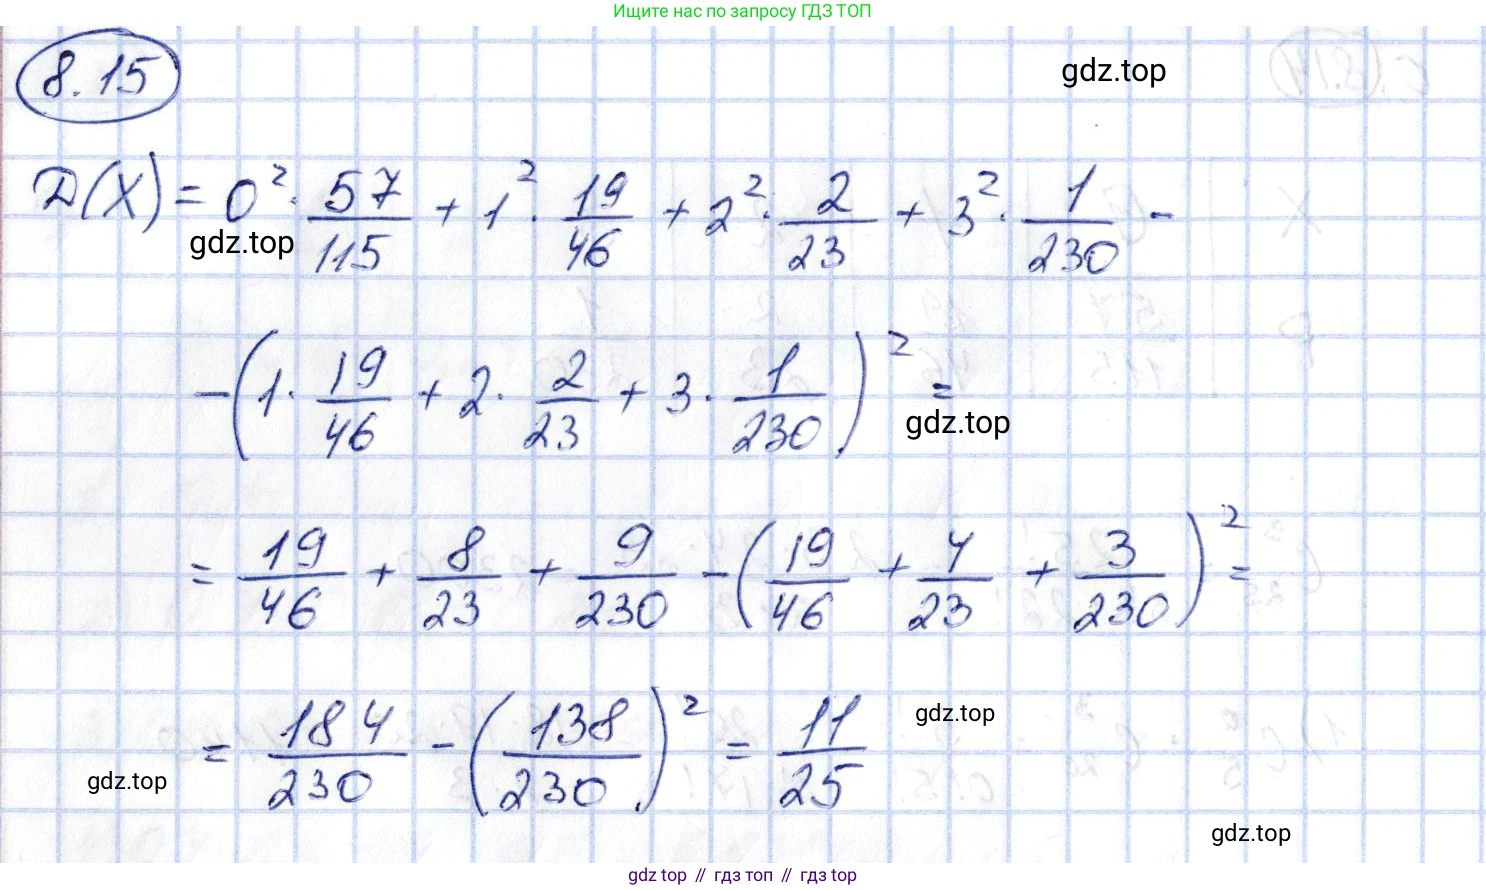 Ищите нас по запросу ГДЗ ТОП
8.15
gdz.top
D(X) = 0² · 57/115 + 1² · 19/46 + 2² · 2/23 + 3² · 1/230 -
gdz.top
- (1 · 19/46 + 2 · 2/23 + 3 · 1/230)² =
gdz.top
= 19/46 + 8/23 + 9/230 - (19/46 + 4/23 + 3/230)² =
= 184/230 - (138/230)² = 11/25
gdz.top
gdz.top
gdz.top
gdz top // гдз топ // гдз top